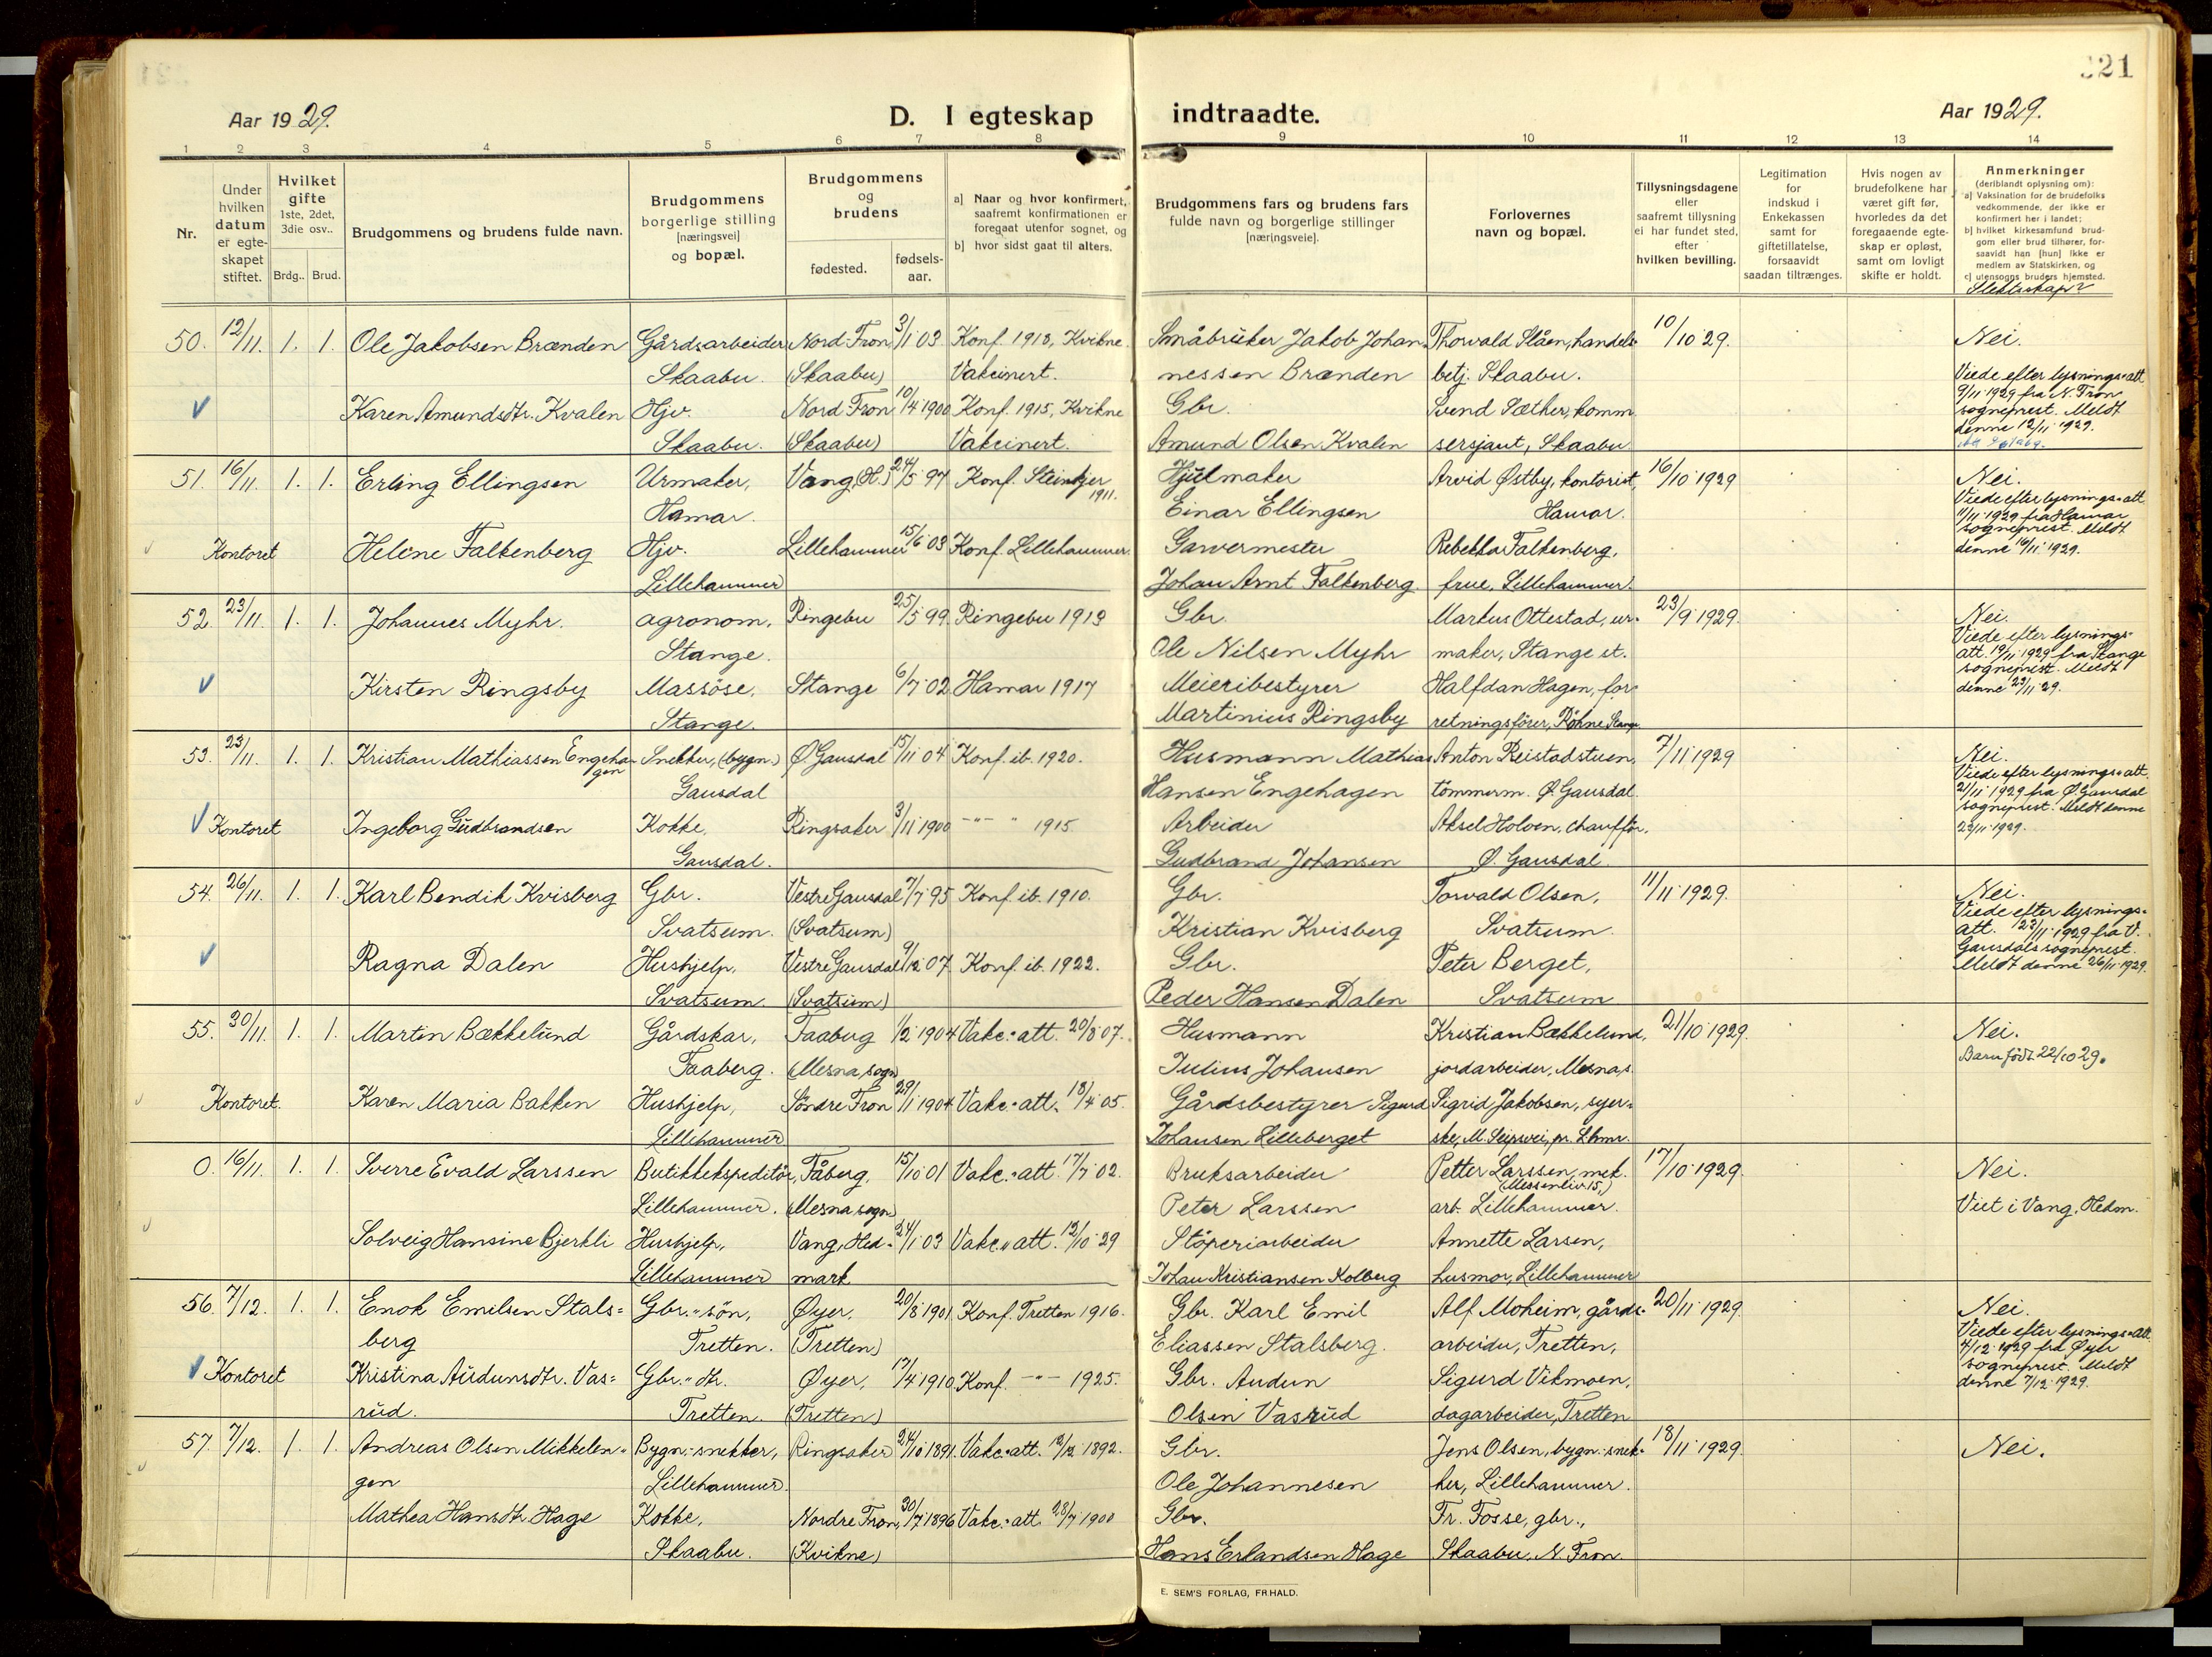 321
Aar 1929.
D. I egteskap indtraadte.
Aar 1929.
1 2 3 4 5 6 7 8 9 10 11 12 13 14
Nr.
Under hvilken datum er egteskapet stiftet.
Hvilket gifte 1ste, 2det, 3die osv..
Brdg.. Brud.
Brudgommens og brudens fulde navn.
Brudgommens borgerlige stilling [næringsvei] og bopæl.
Brudgommens og brudens
fødested. fødsels-aar.
a] Naar og hvor konfirmert, saafremt konfirmationen er foregaat utenfor sognet, og
b] hvor sidst gaat til alters.
Brudgommens fars og brudens fars fulde navn og borgerlige stillinger [næringsveie].
Forlovernes navn og bopæl.
Tillysningsdagene eller saafremt tillysning ei har fundet sted, efter hvilken bevilling.
Legitimation for indskud i Enkekassen samt for giftetillatelse, forsaavidt saadan tiltrænges.
Hvis nogen av brudefolkene har været gift før, hvorledes da det foregaaende egteskap er opløst, samt om lovligt skifte er holdt.
Anmerkninger
(deriblandt oplysning om):
a] Vaksination for de brudefolks vedkommende, der ikke er konfirmert her i landet;
b] hvilket kirkesamfund brudgom eller brud tilhører, forsaavidt han [hun] ikke er medlem av Statskirken, og
c] utensogns bruders hjemsted.
Slektskap?
50. 12/11. 1. 1. Ole Jakobsen Brænden Gårdsarbeider Nord-Fron 3/1 03 Konf. 1918, Kvikne. Småbruker Jakob Johan- Thorvald Slåen, handels- 10/10 29. Nei.
Skaabu. (Skaabu) Vakcinert. nessen Brænden betj. Skaabu. Viede efter lysnings-att.
Karen Amundsdtr. Kvalen Hjv. Nord Fron 10/4 1900 Konf. 1915, Kvikne Gbr. Svend Sæther, komm. 9/11 1929 fra N. Fron
sogneprest. Meldt
Skaabu. (Skaabu) Vakcinert. Amund Olsen Kvalen sersjant, Skaabu. denne 12/11 1929.
51. 16/11. 1. 1. Erling Ellingsen Urmaker, Vang, (H.) 24/5 97 Konf. Steinkjer 1911. Hjulmaker Arvid Østby, kontorist, 16/10 1929 Nei.
Hamar. Einar Ellingsen Hamar. Viede efter lysnings-att.
11/11 1929 fra Hamar
Kontoret Helene Falkenberg Hjv. Lillehammer 15/6 03 Konf. Lillehammer. Garvermester Rebekka Falkenberg, sogneprest. Meldt
Lillehammer Johan Arnt Falkenberg. frue, Lillehammer. denne 16/11 1929.
52. 23/11. 1. 1. Johannes Myhr. agronom, Ringebu 25/5 99 Ringebu 1913 Gbr. Markus Ottestad, ur- 23/9 1929. Nei.
Stange. Ole Nilsen Myhr maker, Stange st. Viede efter lysnings-
att. 19/11 1929 fra Stange
Kirsten Ringsby Massöse, Stange 6/7 02 Hamar 1917 Meieribestyrer Halfdan Hagen, for- sogneprest. Meldt
Stange. Martinius Ringsby retningsfører, Röhne Stange denne 23/11 29.
53. 23/11. 1. 1. Kristian Mathiassen Engehagen Snekker, (bygn.) Ø. Gausdal 15/11 04 Konf. ib. 1920. Husmann Mathias Anton Reistadstuen, 7/11 1929 Nei.
Gausdal Hansen Engehagen tömmerm. Ø. Gausdal. Viede efter lysnings-att.
21/11 1929 fra Ø. Gausdal
Kontoret Ingeborg Gudbrandsen Kokke, Ringsaker 3/11 1900 -"- " 1915 Arbeider Aksel Holoen, chauffør, sogneprest. Meldt denne
Gausdal. Gudbrand Johansen Ø. Gausdal. 23/11 1929.
54. 26/11. 1. 1. Karl Bendik Kvisberg Gbr. Vestre Gausdal 7/7 95 Konf. ib. 1910. Gbr. Torvald Olsen, 11/11 1929. Nei.
Svatsum. (Svatsum) Kristian Kvisberg Svatsum. Viede efter lysnings-
att. 23/11 1929 fra V.
Ragna Dalen Hushjelp, Vestre Gausdal 9/12 07 Konf. ib. 1922. Gbr. Peter Berget, Gausdals sogneprest.
Svatsum. (Svatsum) Peder Hansen Dalen Svatsum Meldt denne 26/11 1929.
55. 30/11. 1. 1. Martin Bækkelund Gårdskar, Faaberg 1/2 1904 Vakc.-att. 20/8 07. Husmann Kristian Bækkelund, 21/10 1929. Nei.
Faaberg. (Mesna sogn) Julius Johansen jordarbeider, Mesna s. Barn födt 22/10 29.
Kontoret. Karen Maria Bakken Hushjelp, Söndre Fron 29/11 1904 Vakc.-att. 18/4 05. Gårdsbestyrer Sigurd Sigrid Jakobsen, syer-
Lillehammer Johansen Lilleberget ske, M. Seipsvei, pr. Lhmr.
0. 16/11. 1. 1. Sverre Evald Larssen Butikkekspeditör, Fåberg, 15/10 01 Vakc.-att. 17/7 02. Bruksarbeider Petter Larssen, mek. 17/10 1929. Nei.
Lillehammer. (Mesna sogn) Peter Larssen arb. Lillehammer. Viet i Vang, Hedm.
Solveig Hansine Bjerkli Hushjelp, Vang, Hed- 24/1 03 Vakc.-att. 12/10 29 Stöperiarbeider Annette Larsen,
Lillehammer mark Johan Kristiansen Kolberg husmor, Lillehammer
56. 7/12. 1. 1. Enok Emilsen Stals= Gbr.-sön, Øyer, 20/8 1901 Konf. Tretten 1916. Gbr. Karl Emil Alf Moheim, gårds- 20/11 1929. Nei.
berg Tretten. (Tretten) Eliassen Stalsberg. arbeider, Tretten, Viede efter lysnings-att.
4/12 1929 fra Øyer
Kontoret Kristina Audunsdtr. Vas= Gbr.-dtr. Øyer, 17/4 1910 Konf. -"- 1925. Gbr. Audun Sigurd Vikmoen, sogneprest. Meldt
rud. Tretten. (Tretten) Olsen Vasrud dagarbeider, Tretten denne 7/12 1929.
57. 7/12. 1. 1. Andreas Olsen Mikkelen- Bygn.-snekker, Ringsaker 24/10 1891. Vakc.-att. 12/12 1892. Gbr. Jens Olsen, bygn.-snek- 18/11 1929. Nei.
gen Lillehammer. Ole Johannesen ker, Lillehammer.
Mathea Hansdtr. Hage Kokke, Nordre Fron, 30/7 1896 Vakc.-att. 28/7 1900 Gbr. Fr. Fosse, gbr.,
Skaabu. (Kvikne) Hans Erlandsen Hage Skaabu, N. Fron.
E. SEM'S FORLAG, FR.HALD.